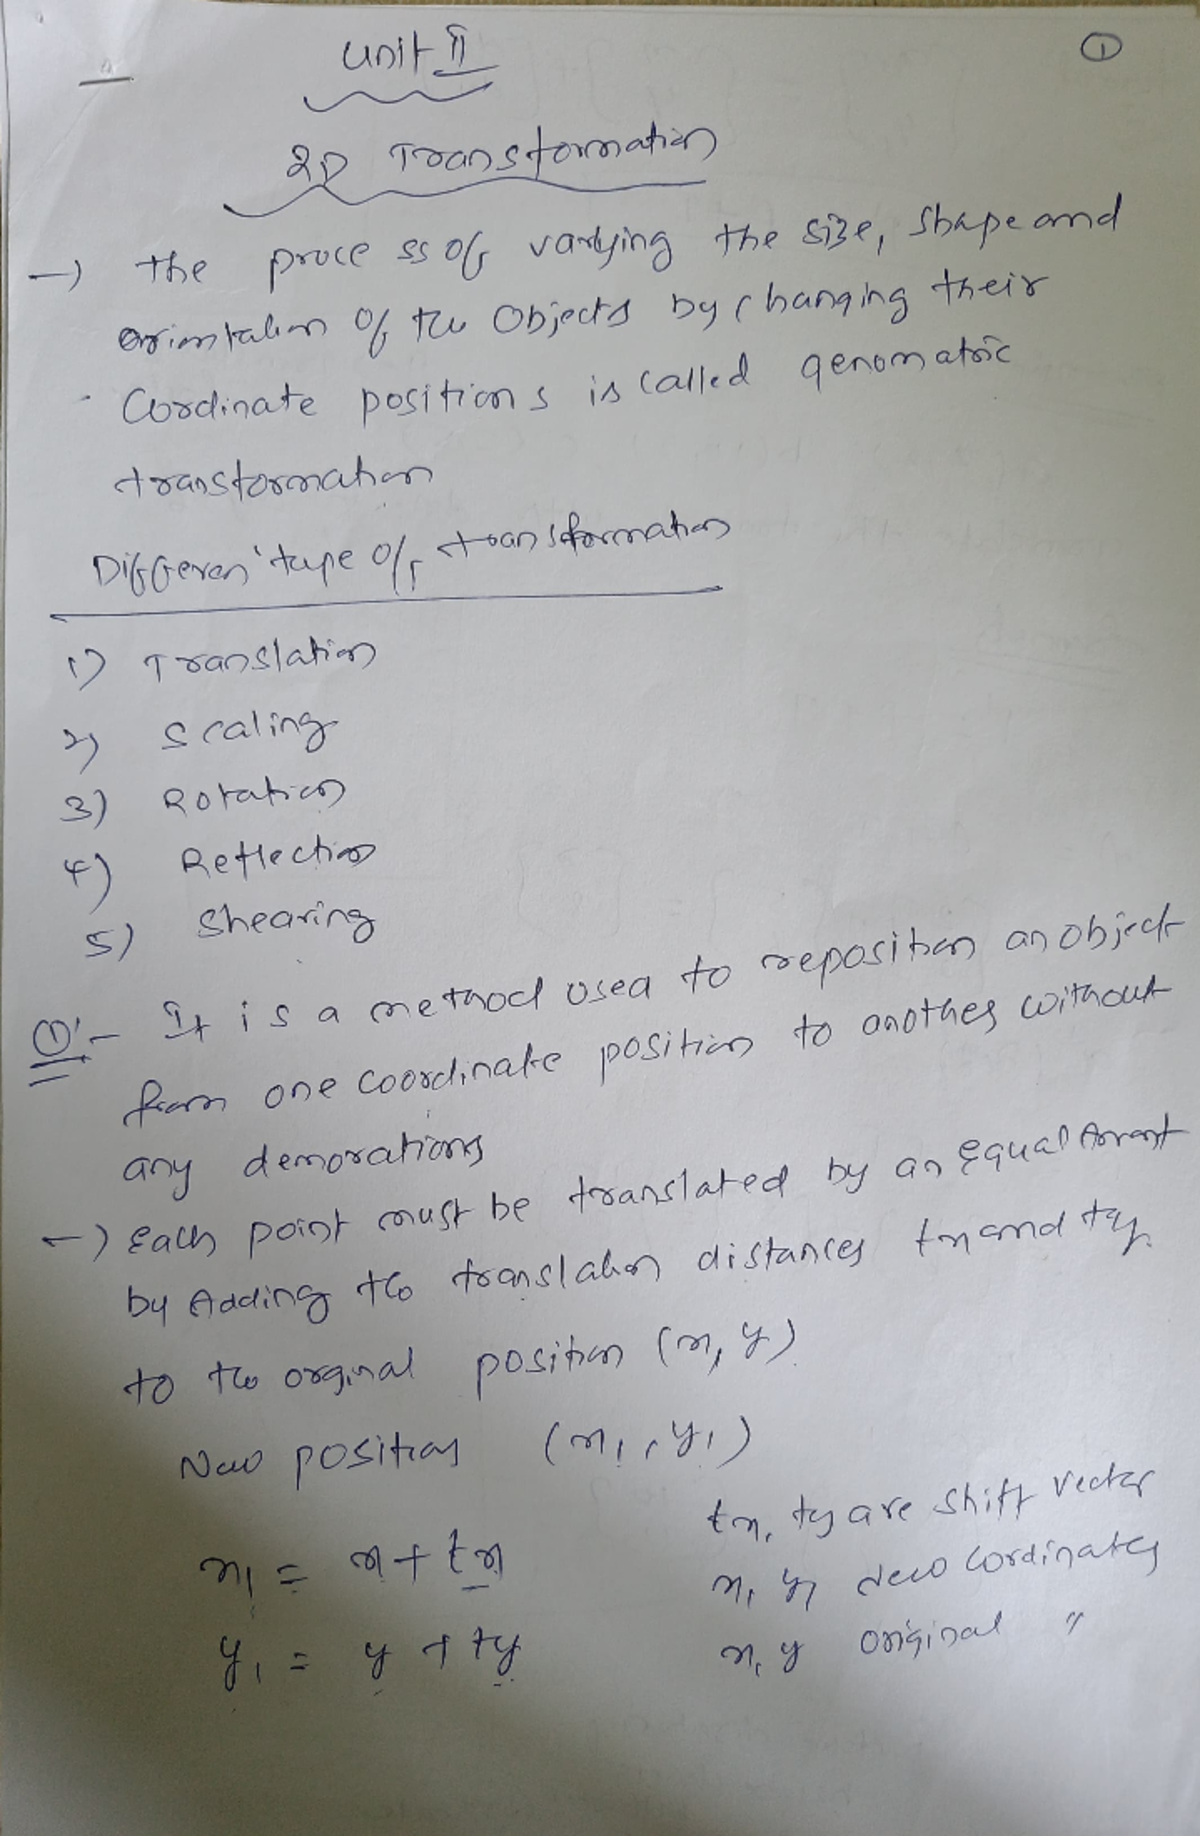 Unit II
①
2D Transformation
→ the process of varying the size, shape and
orientation of the Objects by changing their
Cordinate positions is called genomatric
transformation
Differen type of transformation
1) Translation
2) Scaling
3) Rotation
4) Reflection
5) Shearing
①:- It is a method used to reposition an object
from one coordinate position to another without
any demorations
→ Each point must be translated by an Equal Amont
by Adding the translation distances tx and ty
to the orginal position (x, y)
New position (x1, y1)
x1 = x + tx
y1 = y + ty
tx, ty are shift vector
x1 y1 New Cordinates
x, y original "